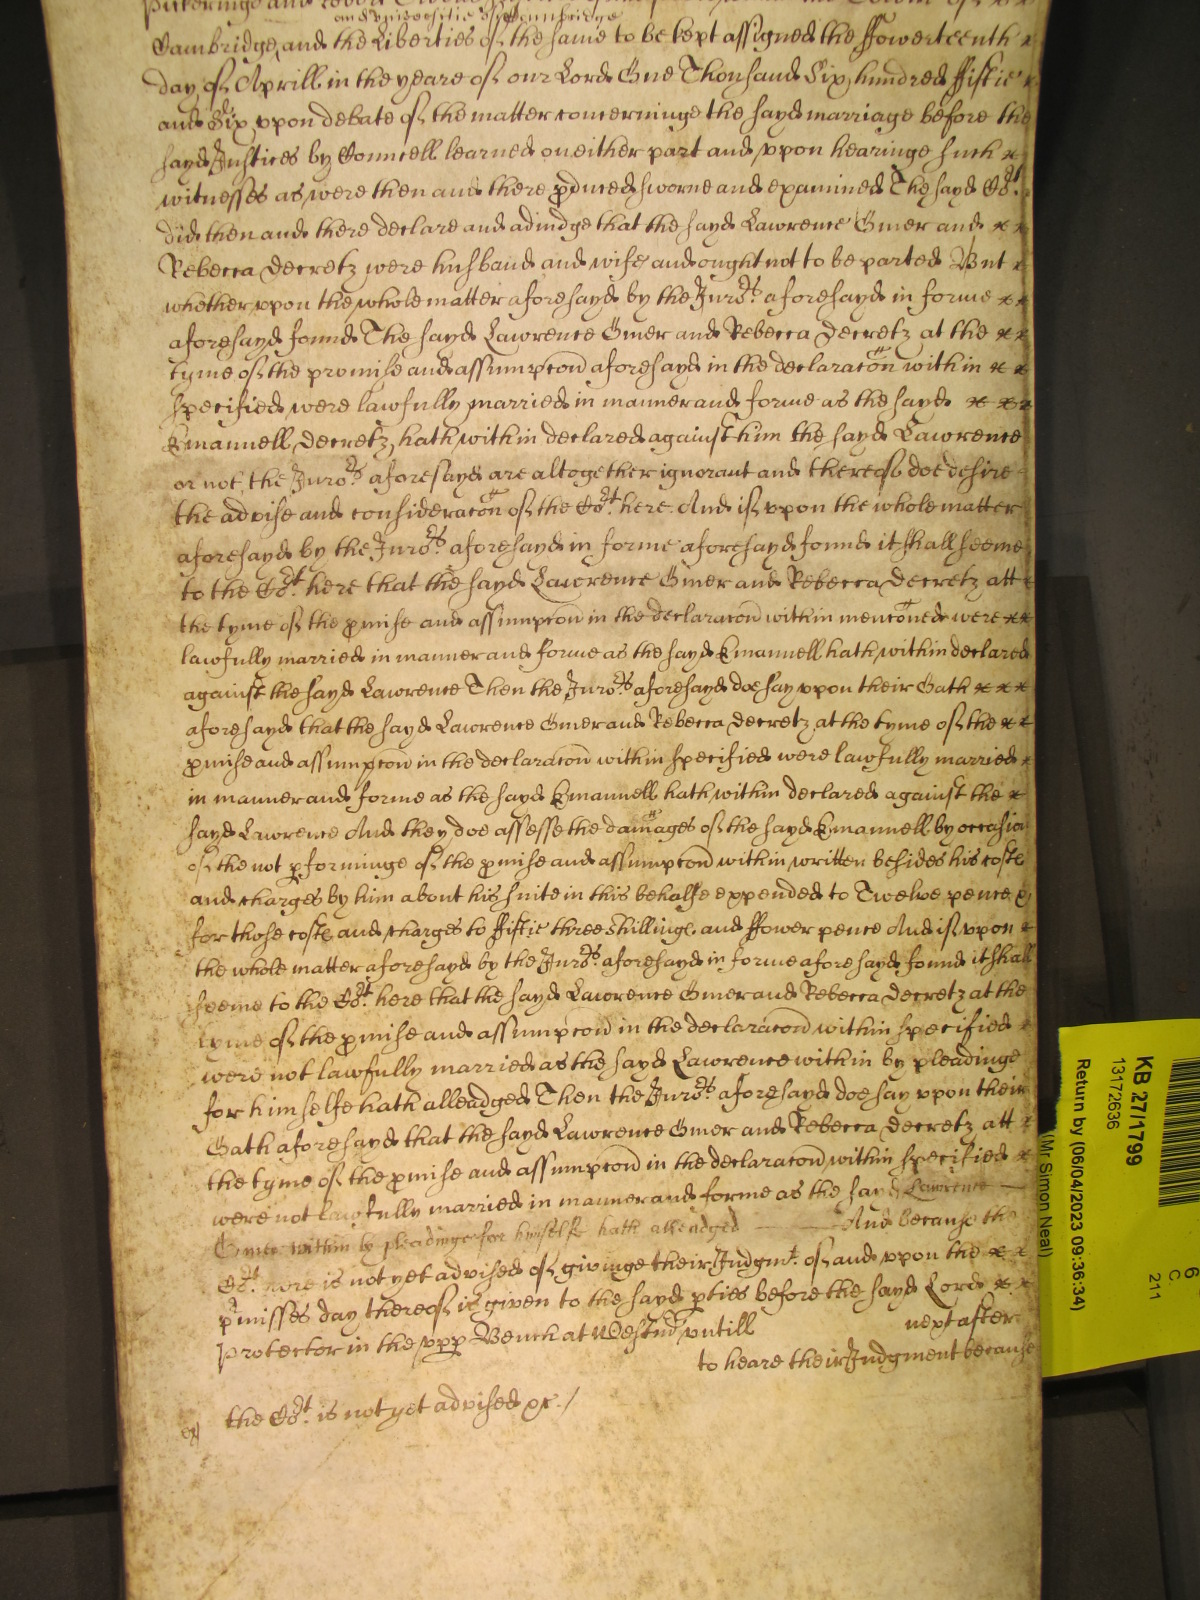 Pickeringe and
and Vniversitie of Cambridge
Cambridge and the Liberties of the same to be kept assigned the ffowerteenth
day of Aprill in the yeare of our Lord One Thousand Six hundred ffiftie
and Six vpon debate of the matter concerninge the sayd marriage before the
sayd Justices by Councell learned on either part and vpon hearinge such
witnesses as were then and there pduced sworne and examined The sayd Cort
did then and there declare and adiudge that the sayd Lawrence Omer and
Rebecca Decretz were husband and wife and ought not to be parted But
whether vpon the whole matter aforesayd by the Jurors aforesayd in forme
aforesayd found The sayd Lawrence Omer and Rebecca Decretz at the
tyme of the promise and assumpcon aforesayd in the declaracon within
specified were lawfully married in manner and forme as the sayd
Emanuell Decretz hath within declared against him the sayd Lawrence
or not the Jurors aforesayd are altogether ignorant and thereof doe desire
the advise and consideracon of the Cort here And if vpon the whole matter
aforesayd by the Jurors aforesayd in forme aforesayd found it shall seeme
to the Cort here that the sayd Lawrence Omer and Rebecca Decretz att
the tyme of the pmise and assumpcon in the declaracon within menconed were
lawfully married in manner and forme as the sayd Emanuell hath within declared
against the sayd Lawrence Then the Jurors aforesayd doe say vpon their Oath
aforesayd that the sayd Lawrence Omer and Rebecca Decretz at the tyme of the
pmise and assumpcon in the declaracon within specified were lawfully married
in manner and forme as the sayd Emanuell hath within declared against the
sayd Lawrence And they doe assesse the damages of the sayd Emanuell by occasion
of the not pforminge of the pmise and assumpcon within written besides his costs
and charges by him about his suite in this behalfe expended to Twelve pence &
for those costs and charges to ffiftie three shillings and ffower pence And if vpon
the whole matter aforesayd by the Jurors aforesayd in forme aforesayd found it shall
seeme to the Cort here that the sayd Lawrence Omer and Rebecca Decretz at the
tyme of the pmise and assumpcon in the declaracon within specified
were not lawfully married as the sayd Lawrence within by pleadinge
for himselfe hath alleadged Then the Jurors aforesayd doe say vpon their
Oath aforesayd that the sayd Lawrence Omer and Rebecca Decretz att
the tyme of the pmise and assumpcon in the declaracon within specified
were not lawfully married in manner and forme as the sayd Lawrence
Omer within by pleadinge for himselfe hath alleadged And because the
Cort here is not yet advised of givinge their Judgmt of and vpon the
pmisses day thereof is given to the sayd pties before the sayd Lord
Protector in the vpp Bench at Westmr vntill next after
to heare their Judgment because
the Cort is not yet advised &c. /
KB 27/1799
13172636
Return by (06/04/2023 09:36:34)
(Mr Simon Neal)
6
C.
211